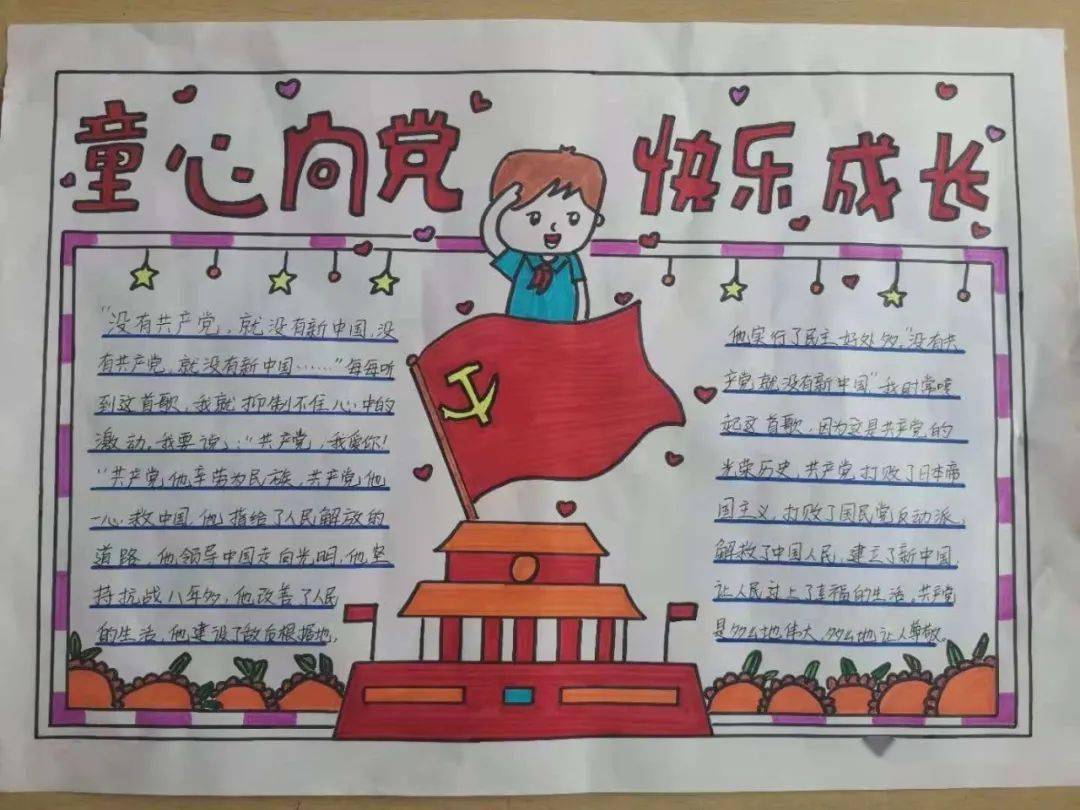 童心向党 快乐成长
“没有共产党,就没有新中国,没
有共产党,就没有新中国……”每每听
到这首歌,我就抑制不住心中的
激动。我要说:“共产党,我爱你!
“共产党他辛苦为民族,共产党他
一心救中国,他指给了人民解放的
道路,他领导中国走向光明,他坚
持抗战八年多,他改善了人民
的生活,他建设了敌后根据地,
他实行了民主好处多。”没有共
产党就没有新中国”我时常哼
起这首歌,因为这是共产党的
光荣历史,共产党打败了日本帝
国主义,打败了国民党反动派,
解救了中国人民,建立了新中国,
让人民过上了幸福的生活。共产党
是多么地伟大,多么地让人尊敬。